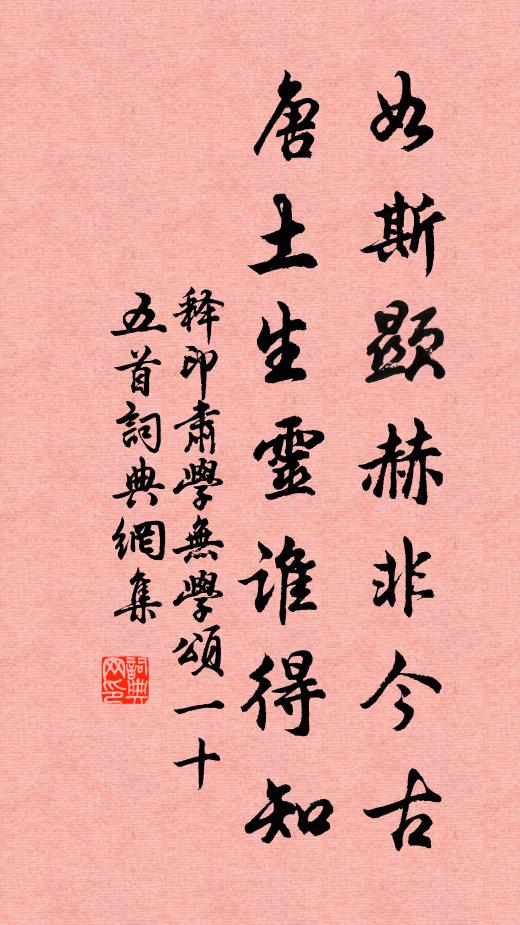 如斯顯赫非今古
唐土生靈谁得知
释印肅學無學頌一十
五首詞典網集
詞典
网印